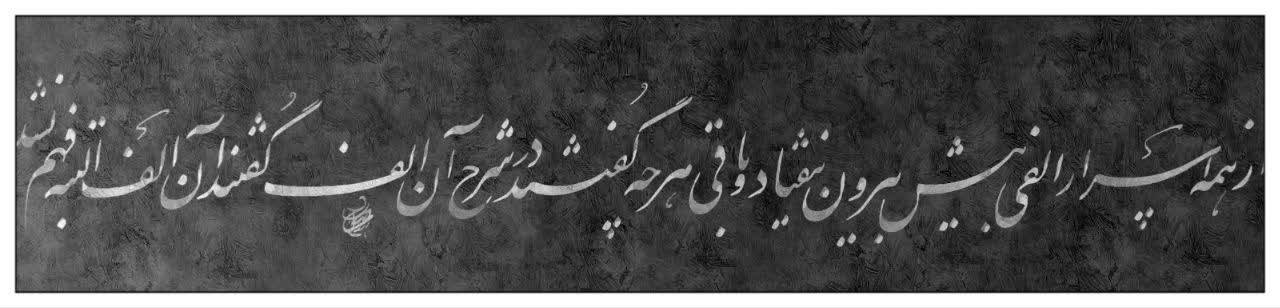 از همه اسرار الفی بیش بیرون نیفتاد و باقی هرچه گفتند در شرح آن الف گفتند آن الف البته فهم نشد